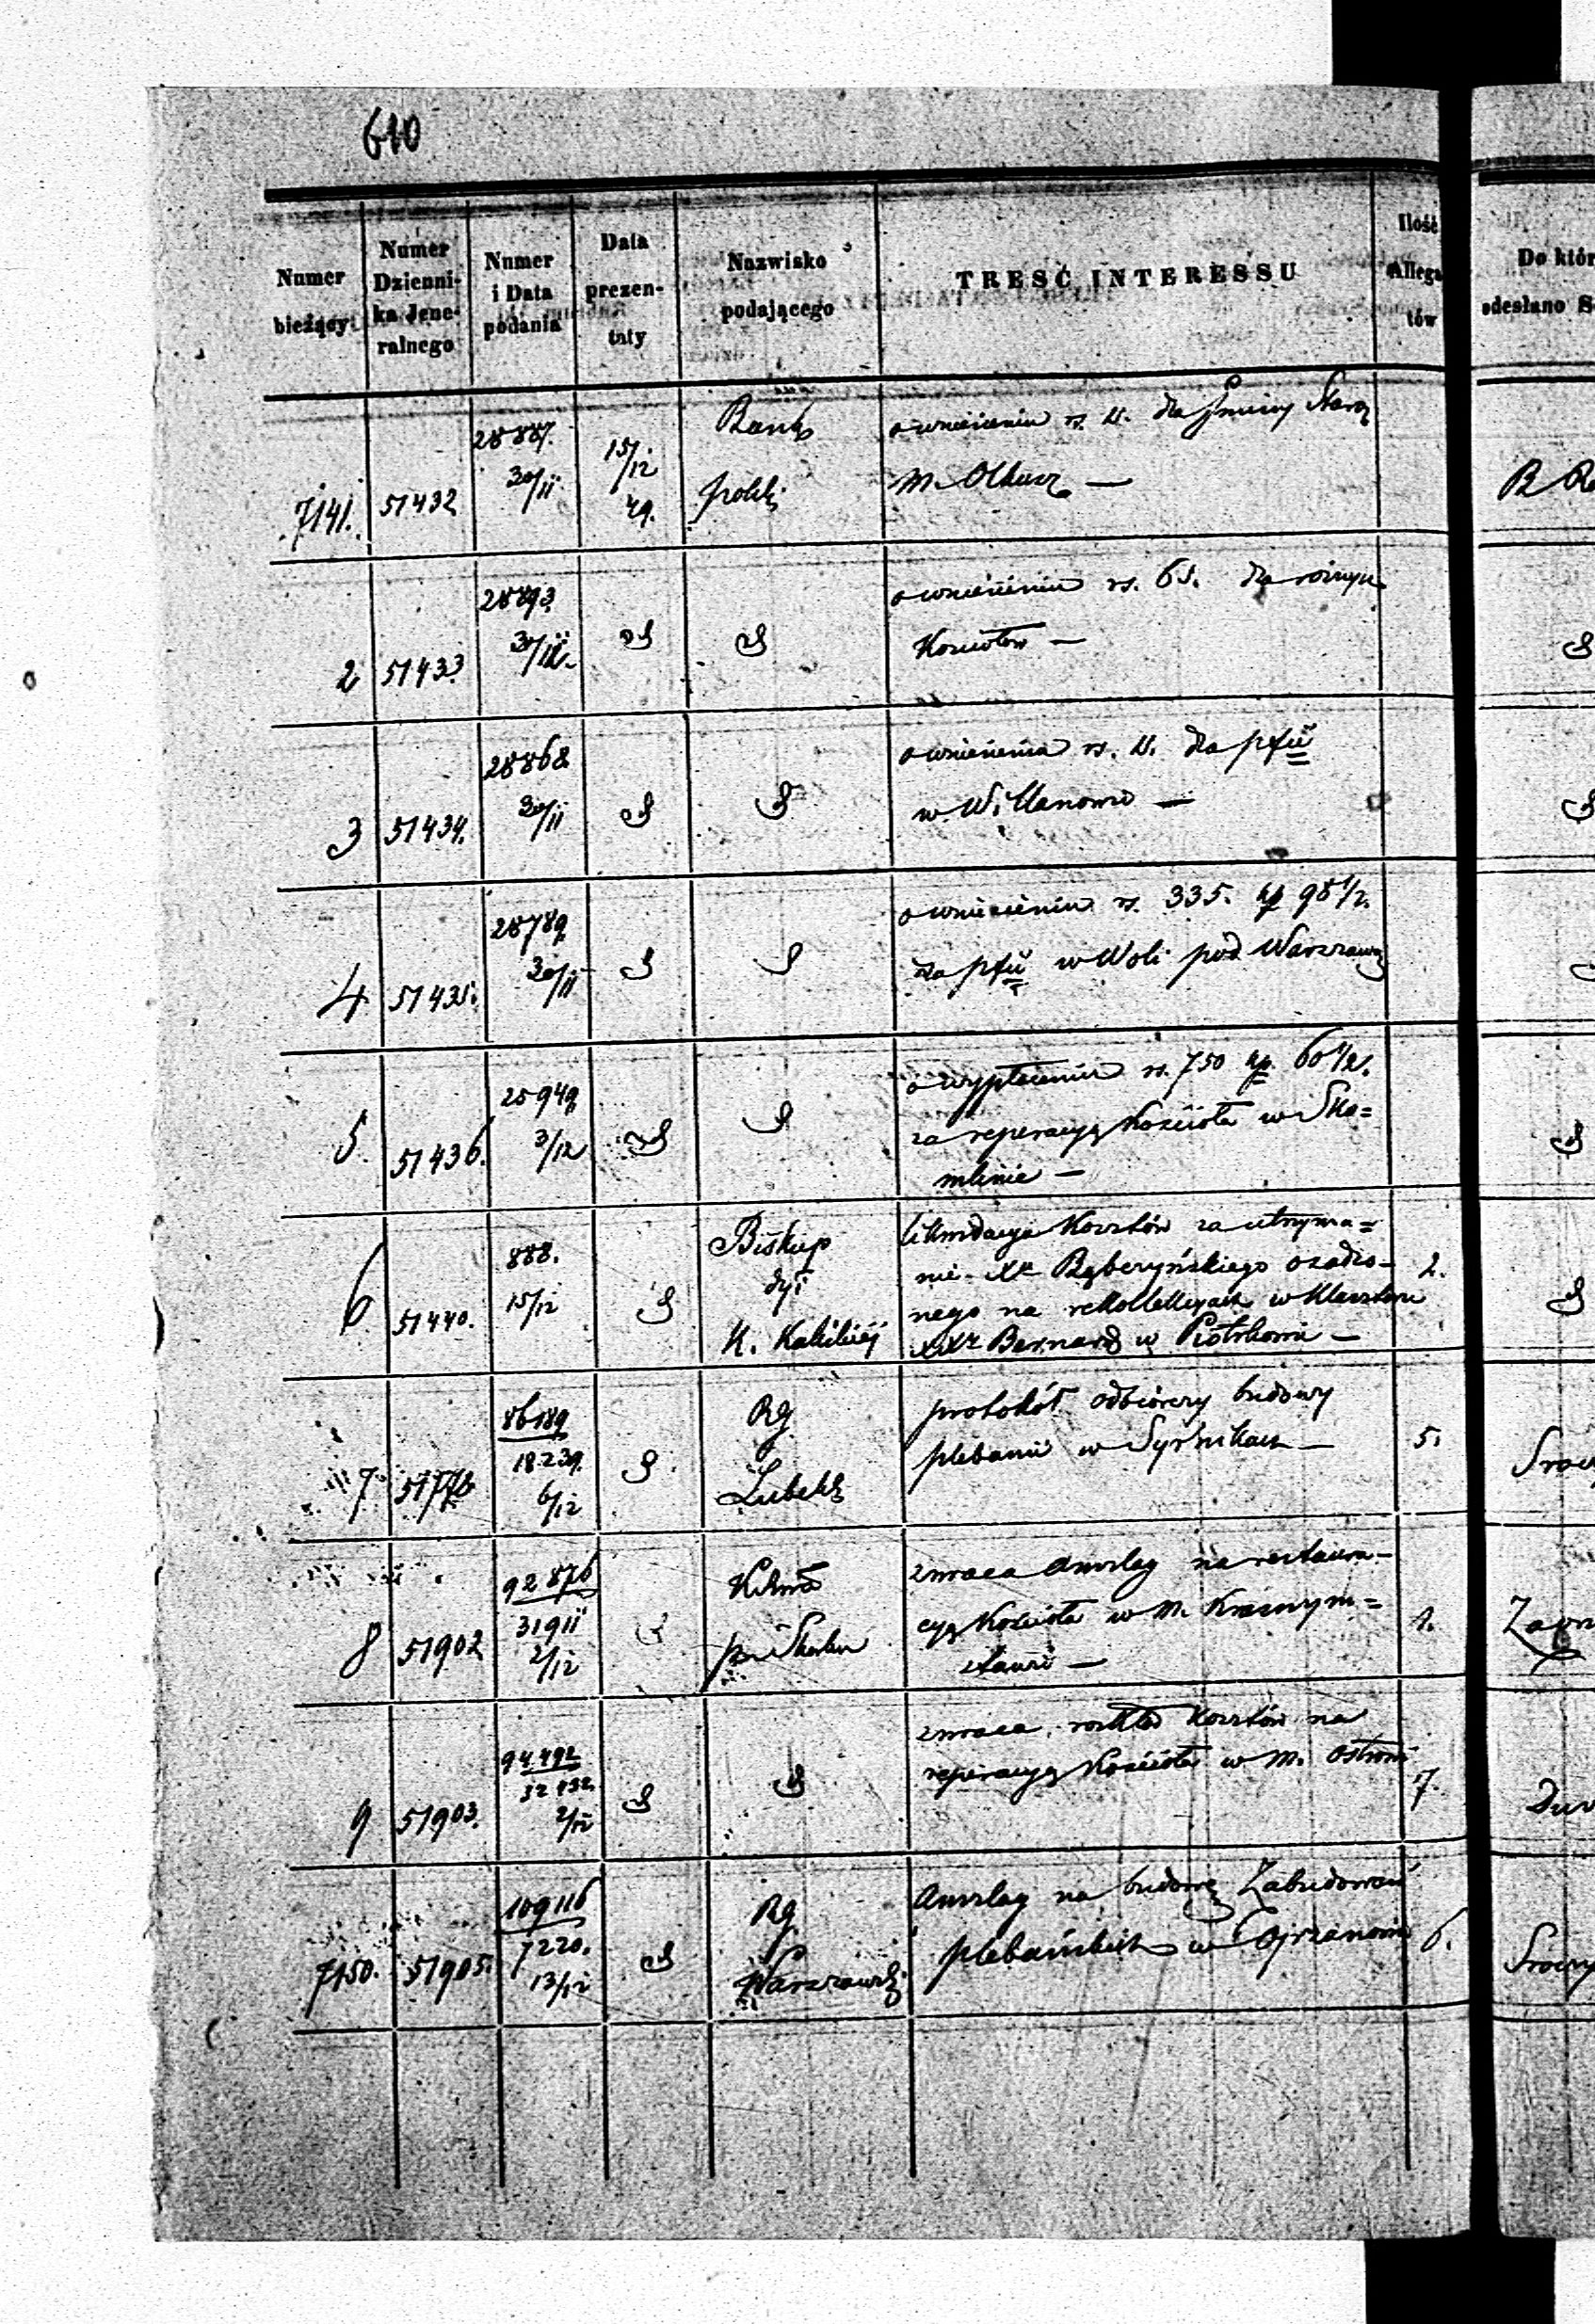 610
Numer
bieżący
Numer
Dzienni-
ka Jene-
ralnego
Numer
i Data
podania
Data
prezen-
taty
Nazwisko
podającego
TREŚĆ INTERESSU
Ilość
Allega
tów
Do któr
odesłano S
7141.
51432
28887.
30/11.
15/12
49.
Bank
polski
o wniesieniu rs. dla Gminy Staroz
m. Olkusz —
2
51433.
28893.
o wniesieniu rs. 65. dla różnych
Kościołów —
3
51434.
28868
30/11
o wniesieniu rs. dla pfii
w Willanowie —
4
51435.
28789
30/11
o wniesieniu rs. 335. kp 98 1/2.
dla pfii w Woli pod Warszawą
5.
51436.
28949
3/12
o wypłaceniu rs. 750 kp. 60 1/2.
za reperacyą Kościoła w Sko=
mlinie —
6
51440.
888.
15/12
Biskup
dyi
K. Kaliskiéj
likwidacya Kosztów za utrzyma=
nie Xa osadzo-
nego na rekollekcyach w Klasztorze
XXr Bernard w Piotrkowie —
2.
7
86189
18239.
6/12
RG
Lubelski
protokół odbiorczy budowy
plebanii w Syrnikach —
5.
8
51902
92876
31911
2/12
p. i Skarbu
zwraca Anszlag na restaura-
cyą Kościoła w m. Krasnym=
stawie —
1.
9
51903.
94492
32432.
2/12
zwraca rozkład Kosztów na
reperacyą Kościoła w m. Ostrowie
7.
7150.
51905.
109116
7220.
13/12
RG
Warszawski
Anszlag na budowę Zabudowań
plebańskich w Cojrzanowie
6.